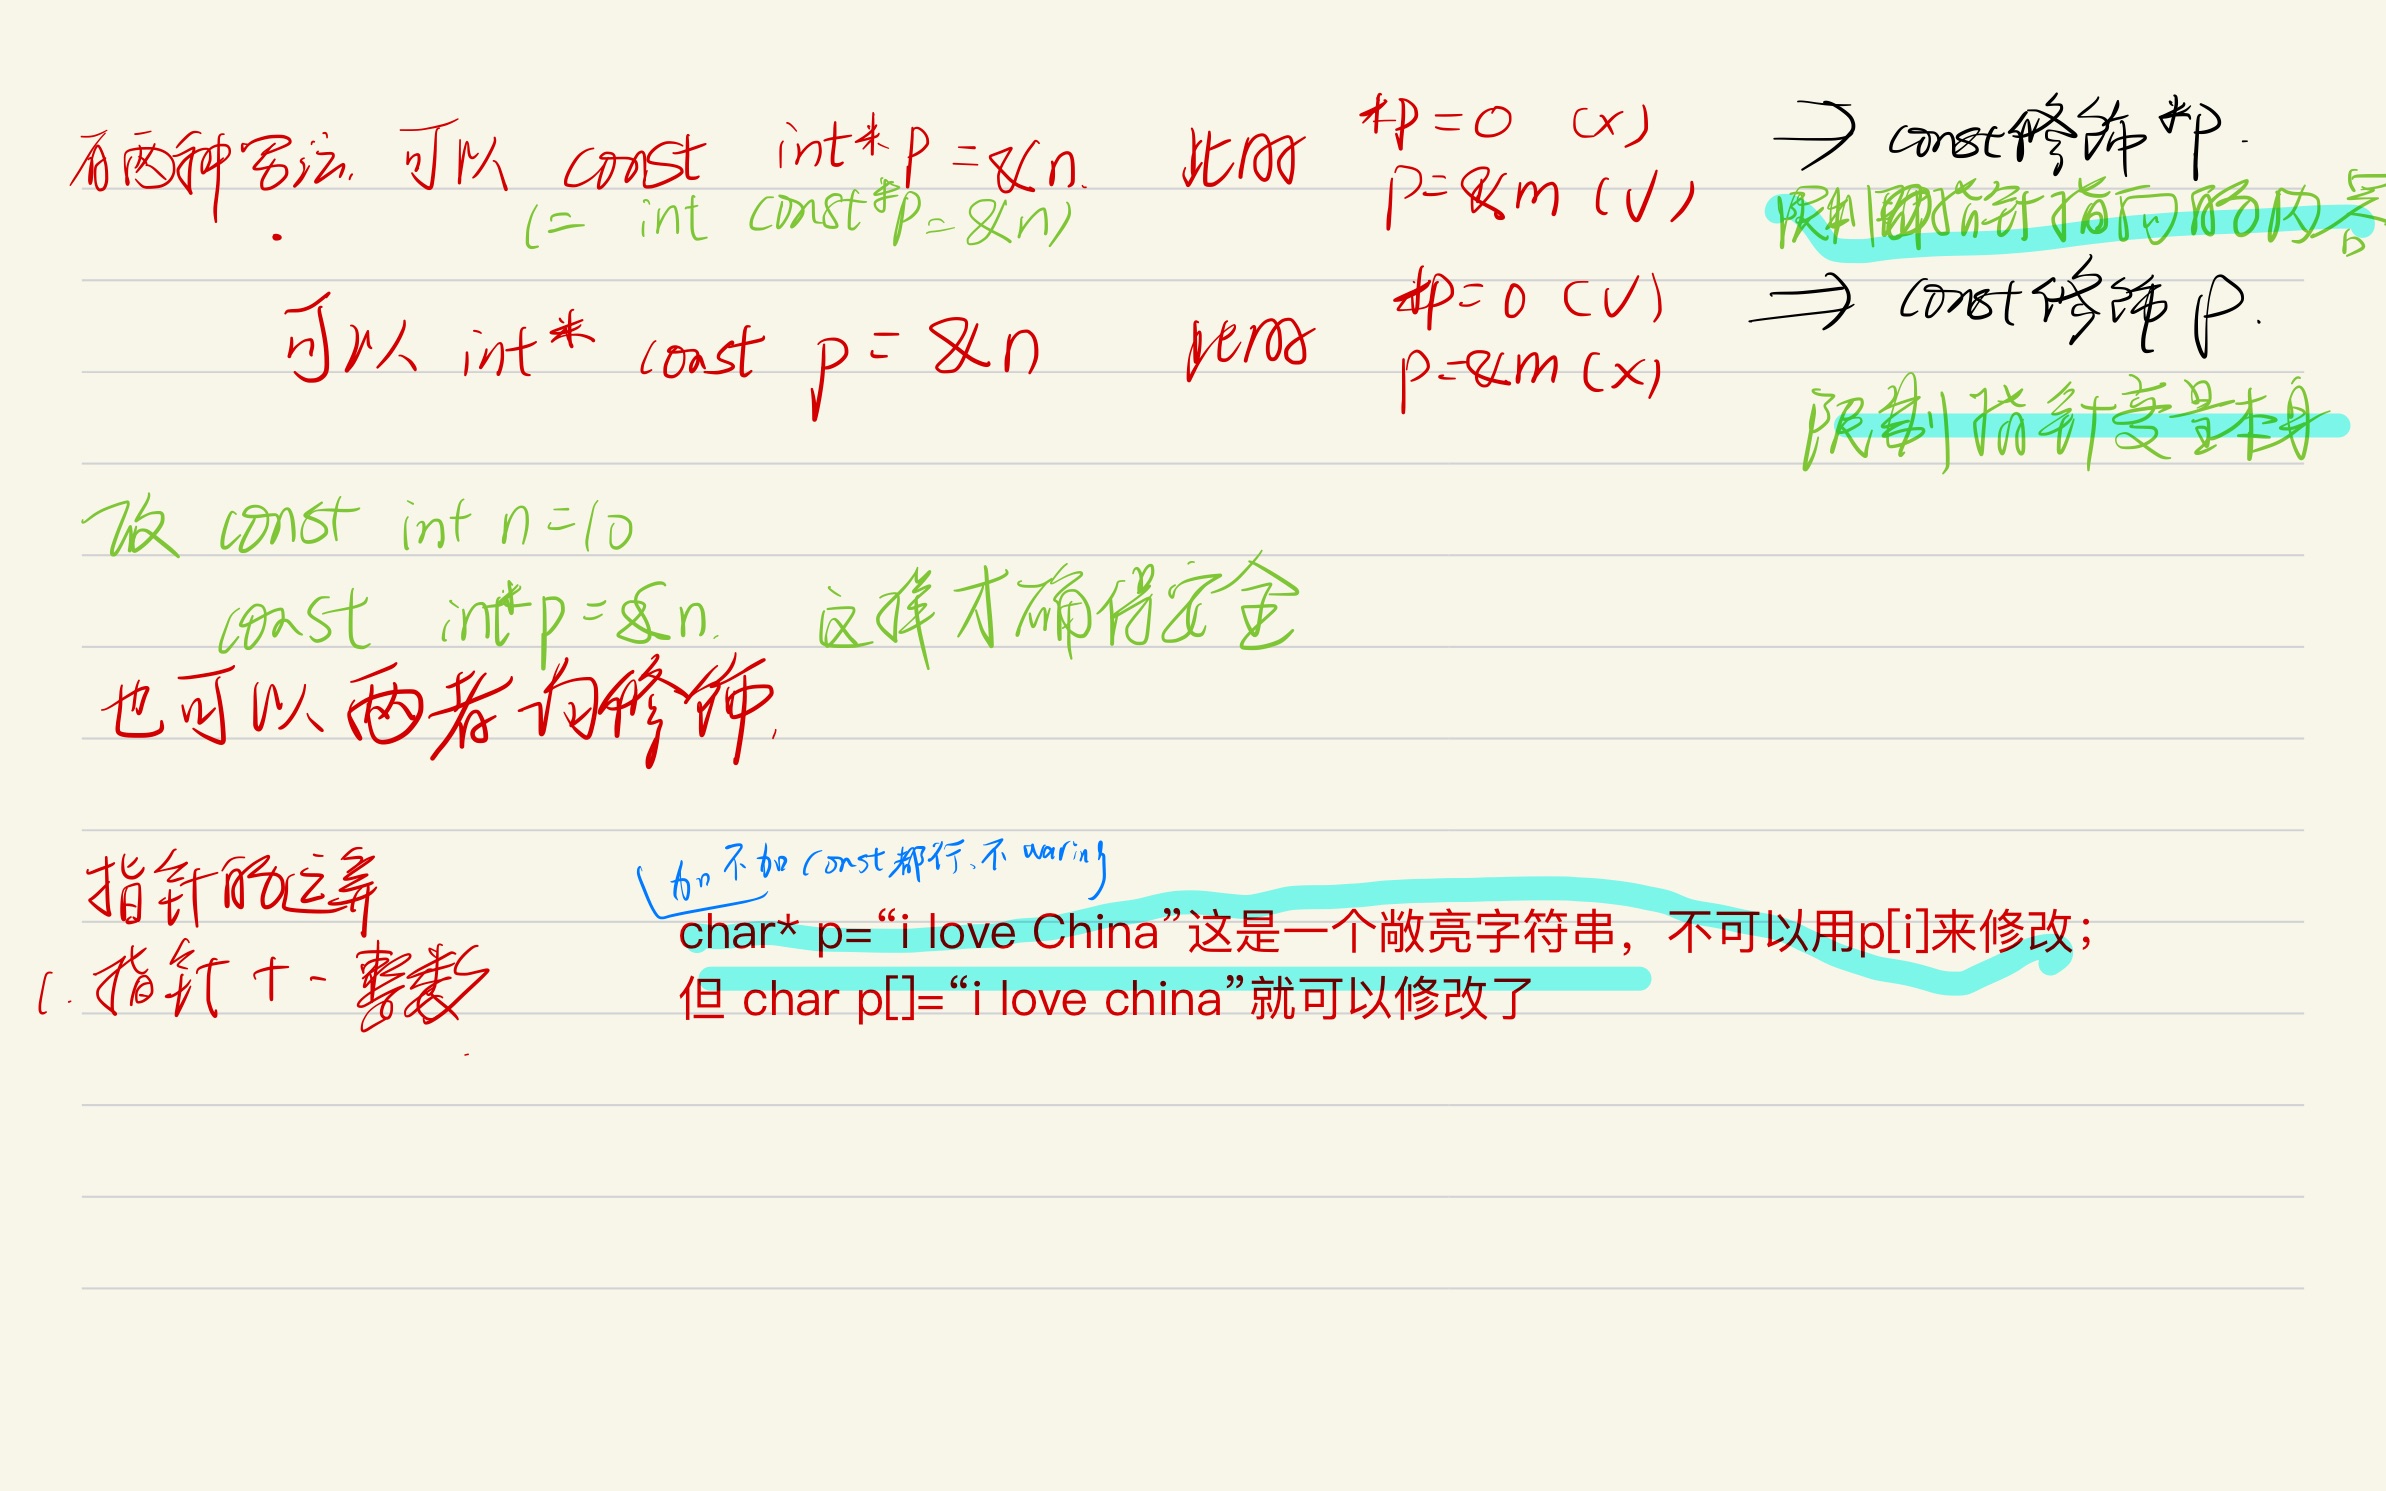 有两种写法. 可以 const int* p=&n. 此时 *p=0 (x) ⇒ const修饰*p.
(= int const*p=&n) p=&m (√) 限制指针指向的内容
可以 int* const p=&n 此时 *p=0 (√) ⇒ const修饰p.
p=&m (x) 限制指针变量本身
故 const int n=10
const int*p=&n. 这样才确保安全
也可以两者均修饰.
加不加const都行、不waring
指针的运算
char* p=“i love China”这是一个敞亮字符串，不可以用p[i]来修改；
1. 指针+-整数
但 char p[]=“i love china”就可以修改了